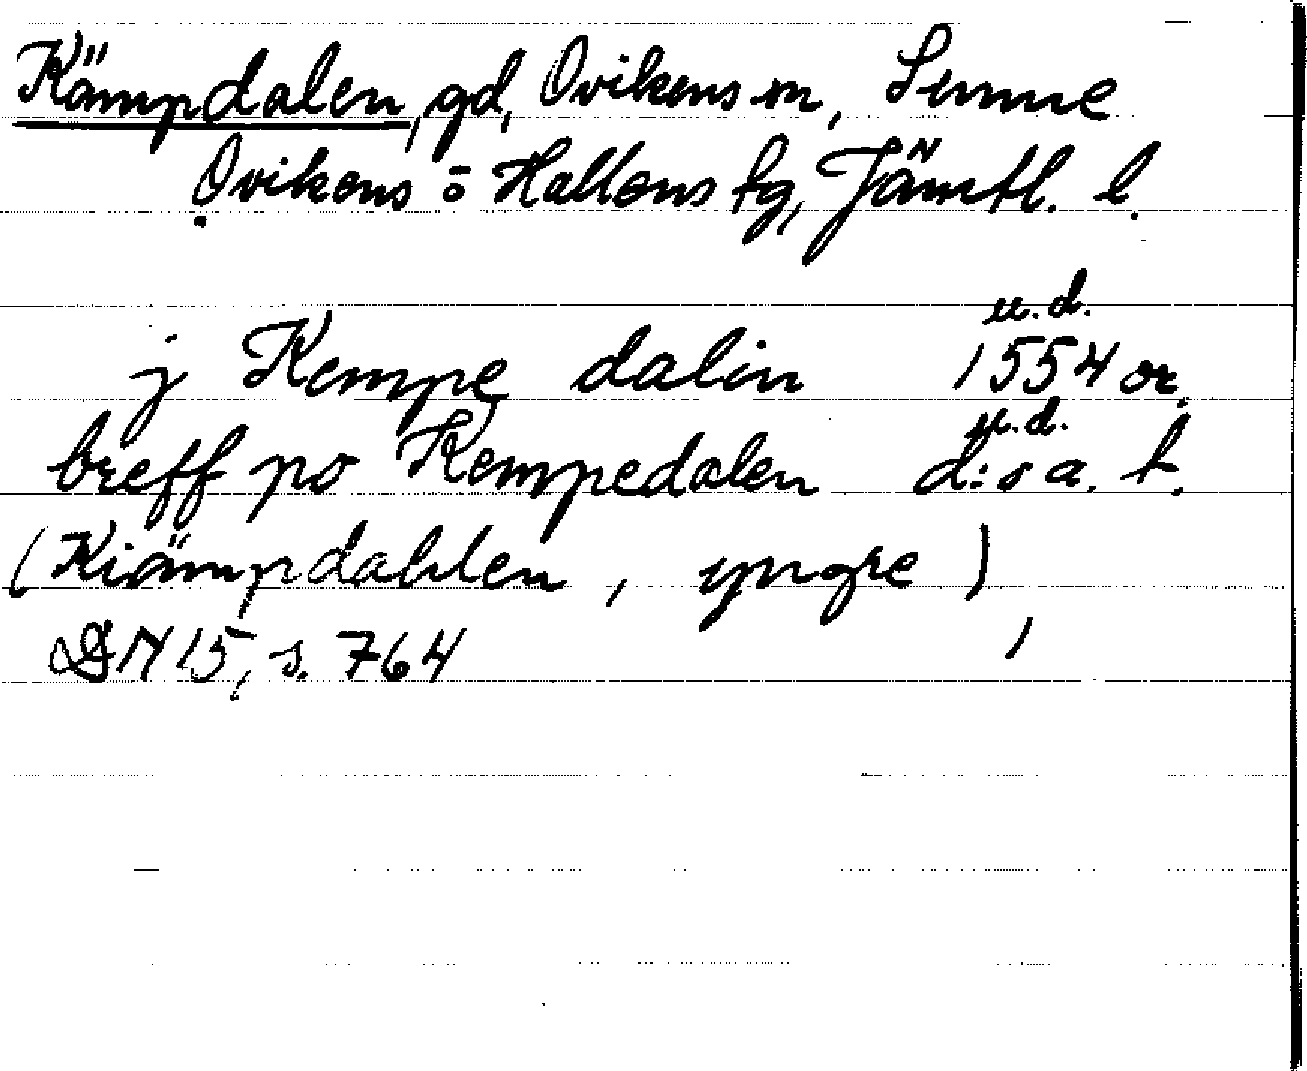 Kämpdalen, gd, Ovikens sn, Sunne
Ovikens o Hallens tg, Jämtl. l.
u.d.
j Kempe dalin 1554 or.
u.d.
breff po Kempedalen d:s a. t.
(Kiämpdahlen, yngre)
DN 15, s. 764